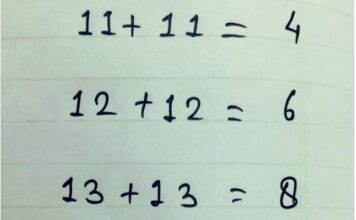 11+ 11 = 4
12 +12 = 6
13 +13 = 8